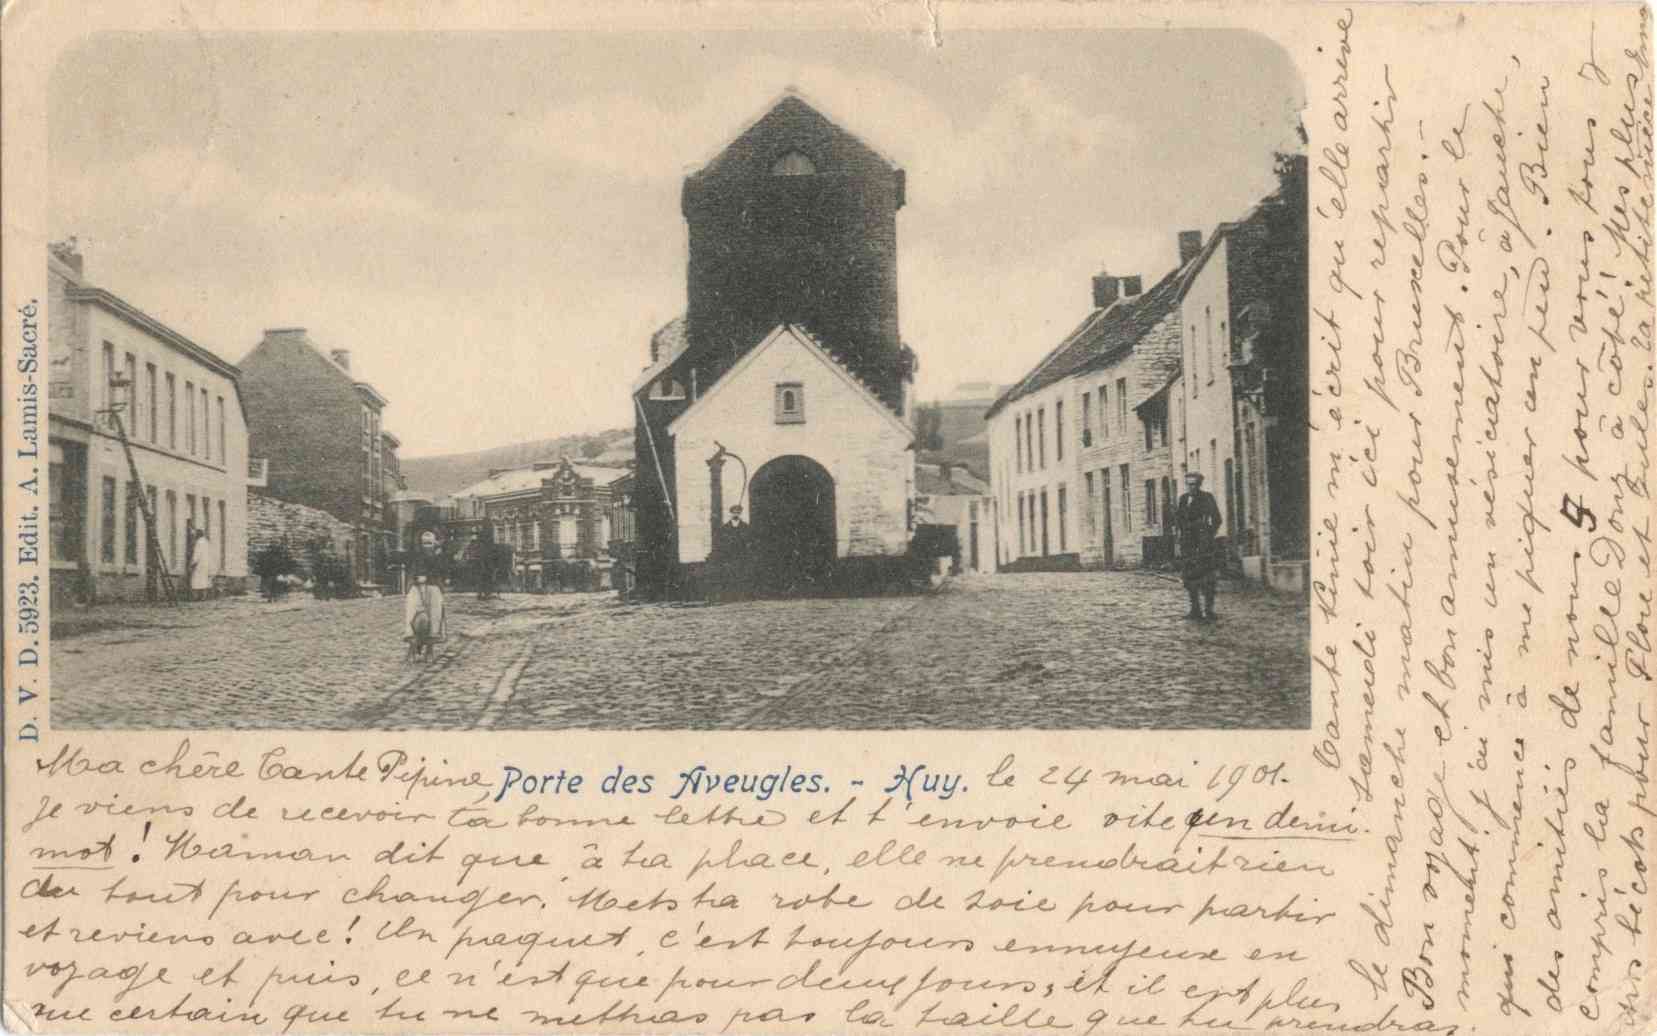 D. V. D. 5923. Edit. A. Lamis-Sacré.
Ma chère Tante Pépine, Porte des Aveugles. - Huy. le 24 mai 1901.
Je viens de recevoir ta bonne lettre et t'envoie vite un demi.
mot! Maman dit que à ta place, elle ne prendrait rien
du tout pour changer. Mets ta robe de soie pour partir
et reviens avec! Un paquet, c'est toujours ennuyeux en
voyage et puis, ce n'est que pour deux jours, et il est plus
que certain que tu ne mettras pas la taille que tu prendras.
Tante m'écrit qu'elle arrive
Samedi soir ici pour repartir
le dimanche matin pour Bruxelles. -
Bon voyage et bon amusement. Pour le
moment, j'ai mis un vésicatoire, à gauche,
qui commence à me piquer un peu. Bien
des amitiés de nous 5 pour vous tous y
compris la famille à côté! Mes plus
bécots pour et la petite